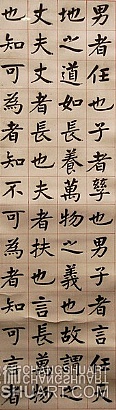 男者任也子者孳也男子者言任天
地之道如長養萬物之義也故謂之
丈夫丈者長也夫者扶也言長萬物
也知可為者知不可為者知可言者
SHUART.COM